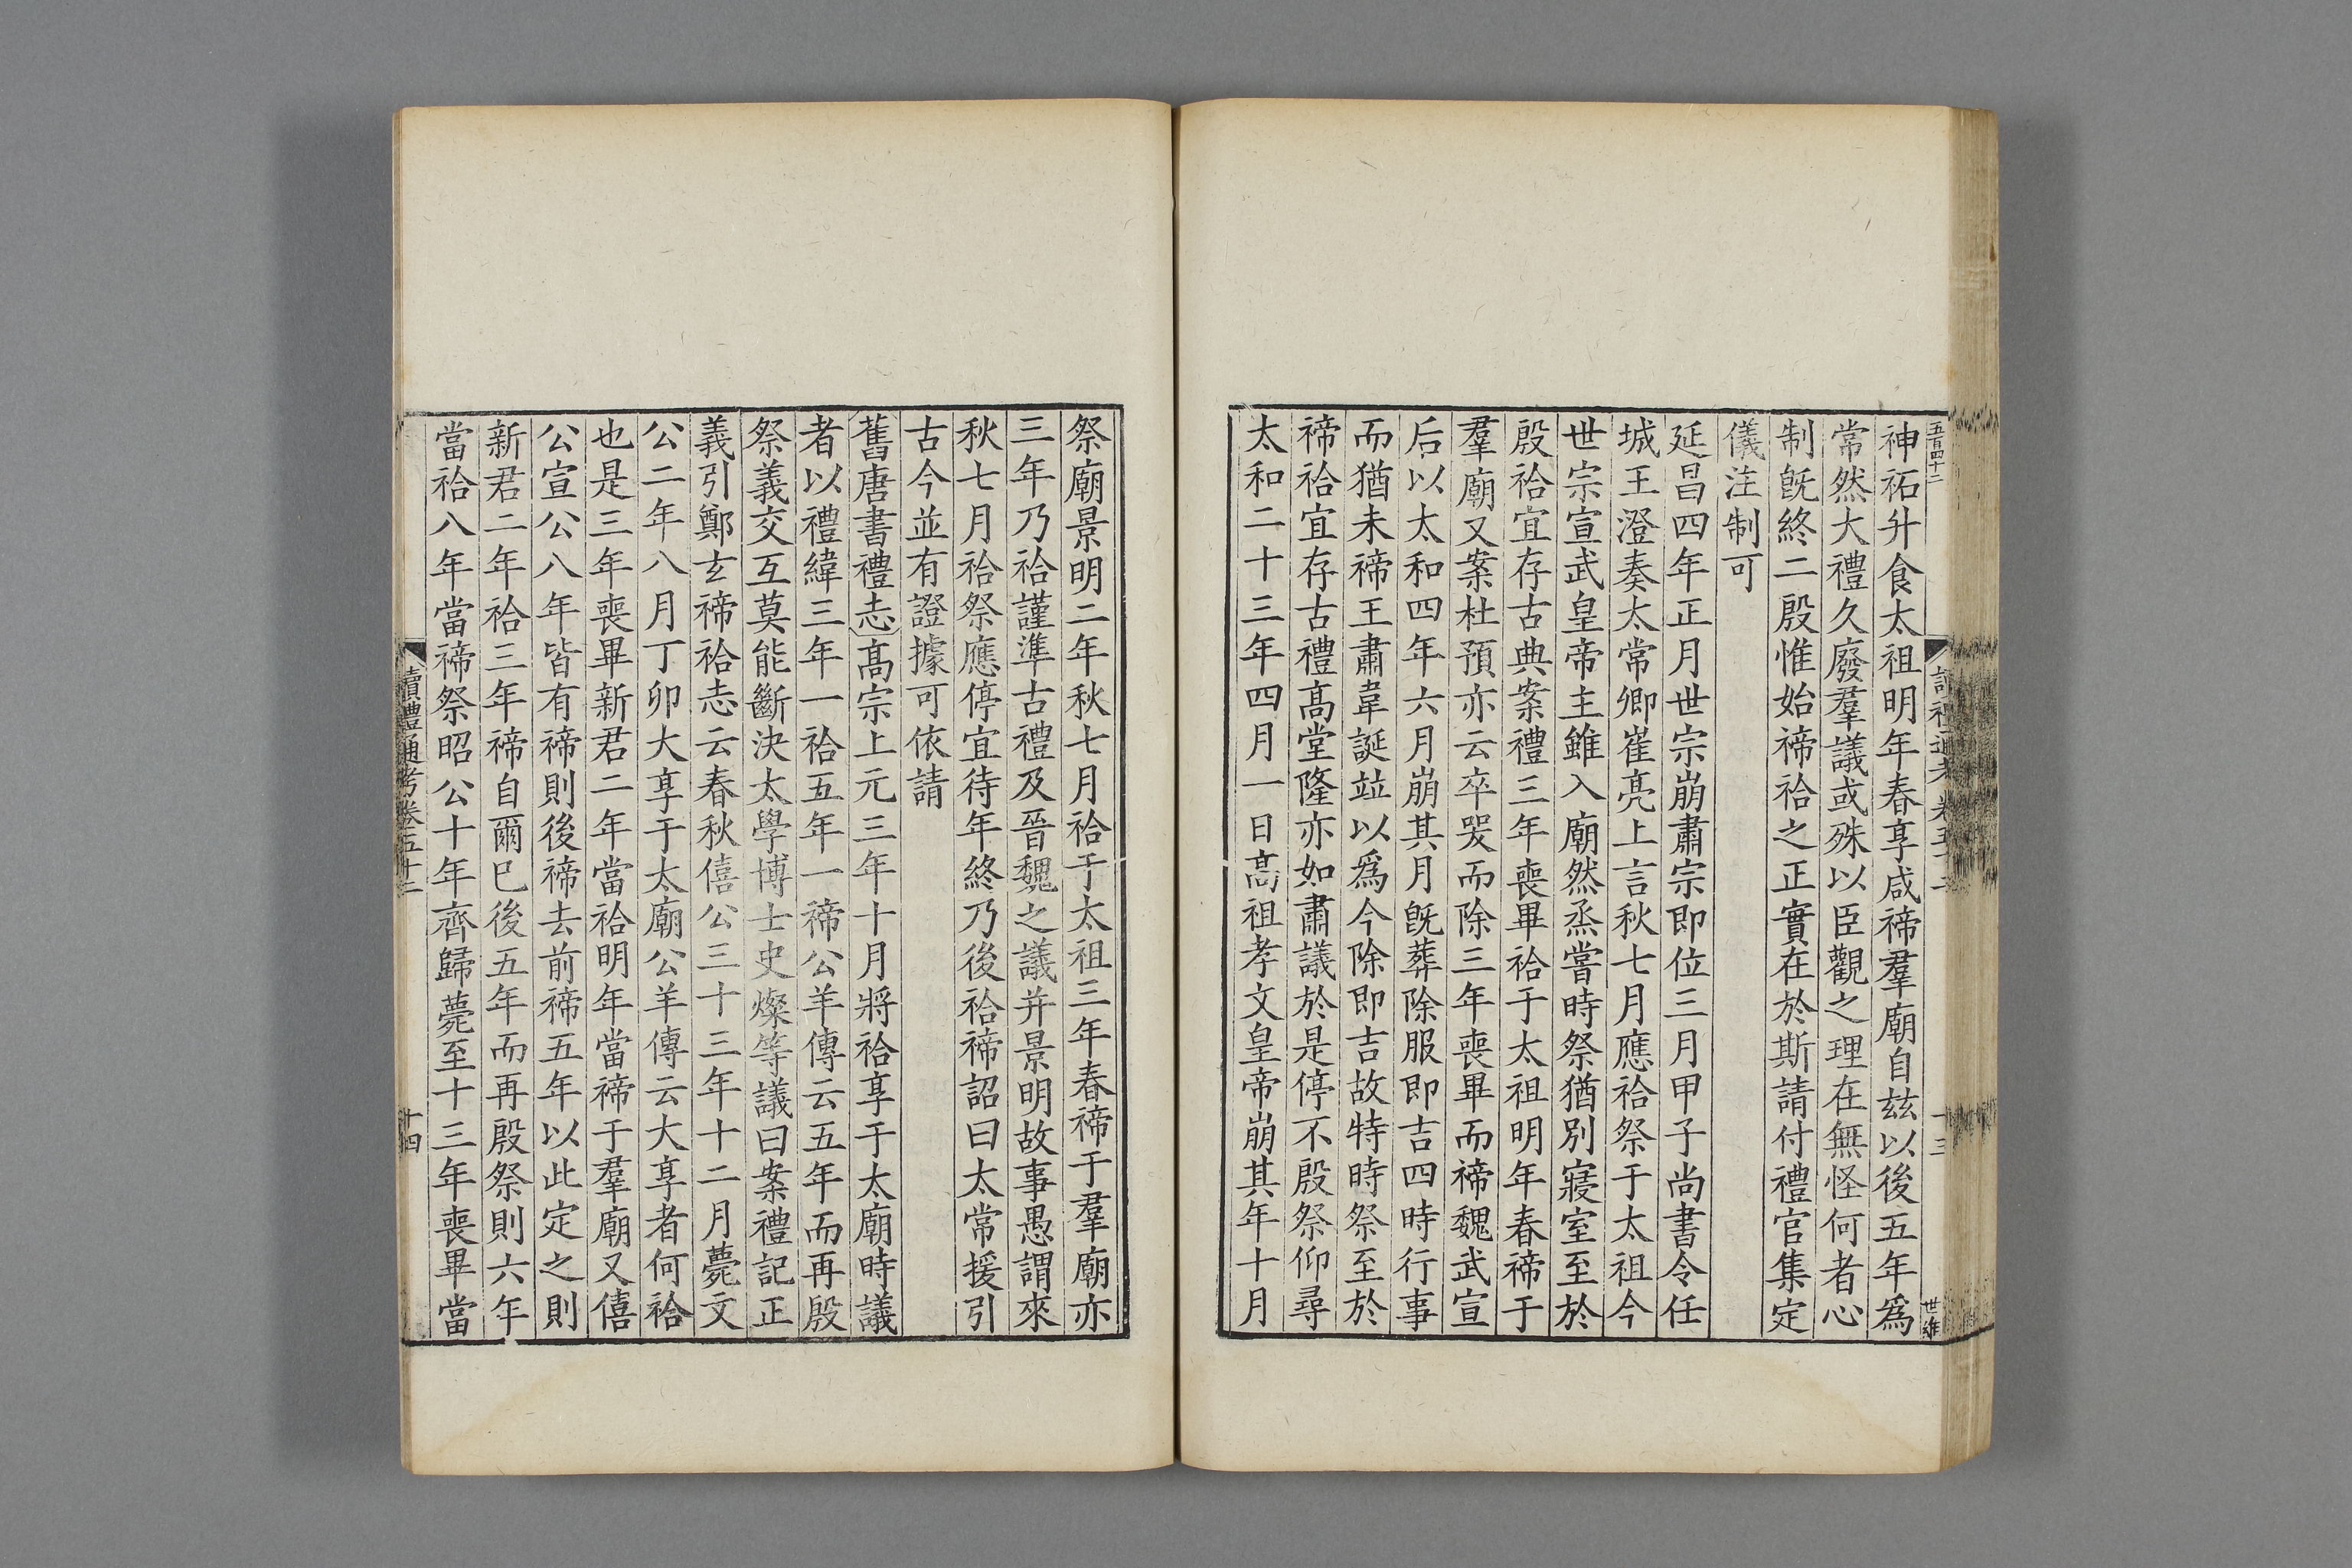 五百四十二
神祏升食太祖明年春享咸禘羣廟自兹以後五年爲
常然大禮久廢羣議或殊以臣觀之理在無怪何者心
制旣終二殷惟始禘祫之正實在於斯請付禮官集定
儀注制可
延昌四年正月世宗崩肅宗即位三月甲子尚書令任
城王澄奏太常卿崔亮上言秋七月應祫祭于太祖今
世宗宣武皇帝主雖入廟然烝嘗時祭猶別寢室至於
殷祫宜存古典案禮三年喪畢祫于太祖明年春禘于
羣廟又案杜預亦云卒哭而除三年喪畢而禘魏武宣
后以太和四年六月崩其月旣葬除服即吉四時行事
而猶未禘王肅韋誕竝以爲今除即吉故特時祭至於
禘祫宜存古禮髙堂隆亦如肅議於是停不殷祭仰尋
太和二十三年四月一日髙祖孝文皇帝崩其年十月
祭廟景明二年秋七月祫于太祖三年春禘于羣廟亦
三年乃祫謹準古禮及晉魏之議并景明故事愚謂來
秋七月祫祭應停宜待年終乃後祫禘詔曰太常援引
古今並有證據可依請
舊唐書禮志髙宗上元三年十月將祫享于太廟時議
者以禮緯三年一祫五年一禘公羊傳云五年而再殷
祭義交互莫能斷決太學博士史燦等議曰案禮記正
義引鄭玄禘祫志云春秋僖公三十三年十二月薨文
公二年八月丁卯大享于太廟公羊傳云大享者何祫
也是三年喪畢新君二年當祫明年當禘于羣廟又僖
公宣公八年皆有禘則後禘去前禘五年以此定之則
新君二年祫三年禘自爾已後五年而再殷祭則六年
當祫八年當禘祭昭公十年齊歸薨至十三年喪畢當
讀禮通考卷五十二
十四